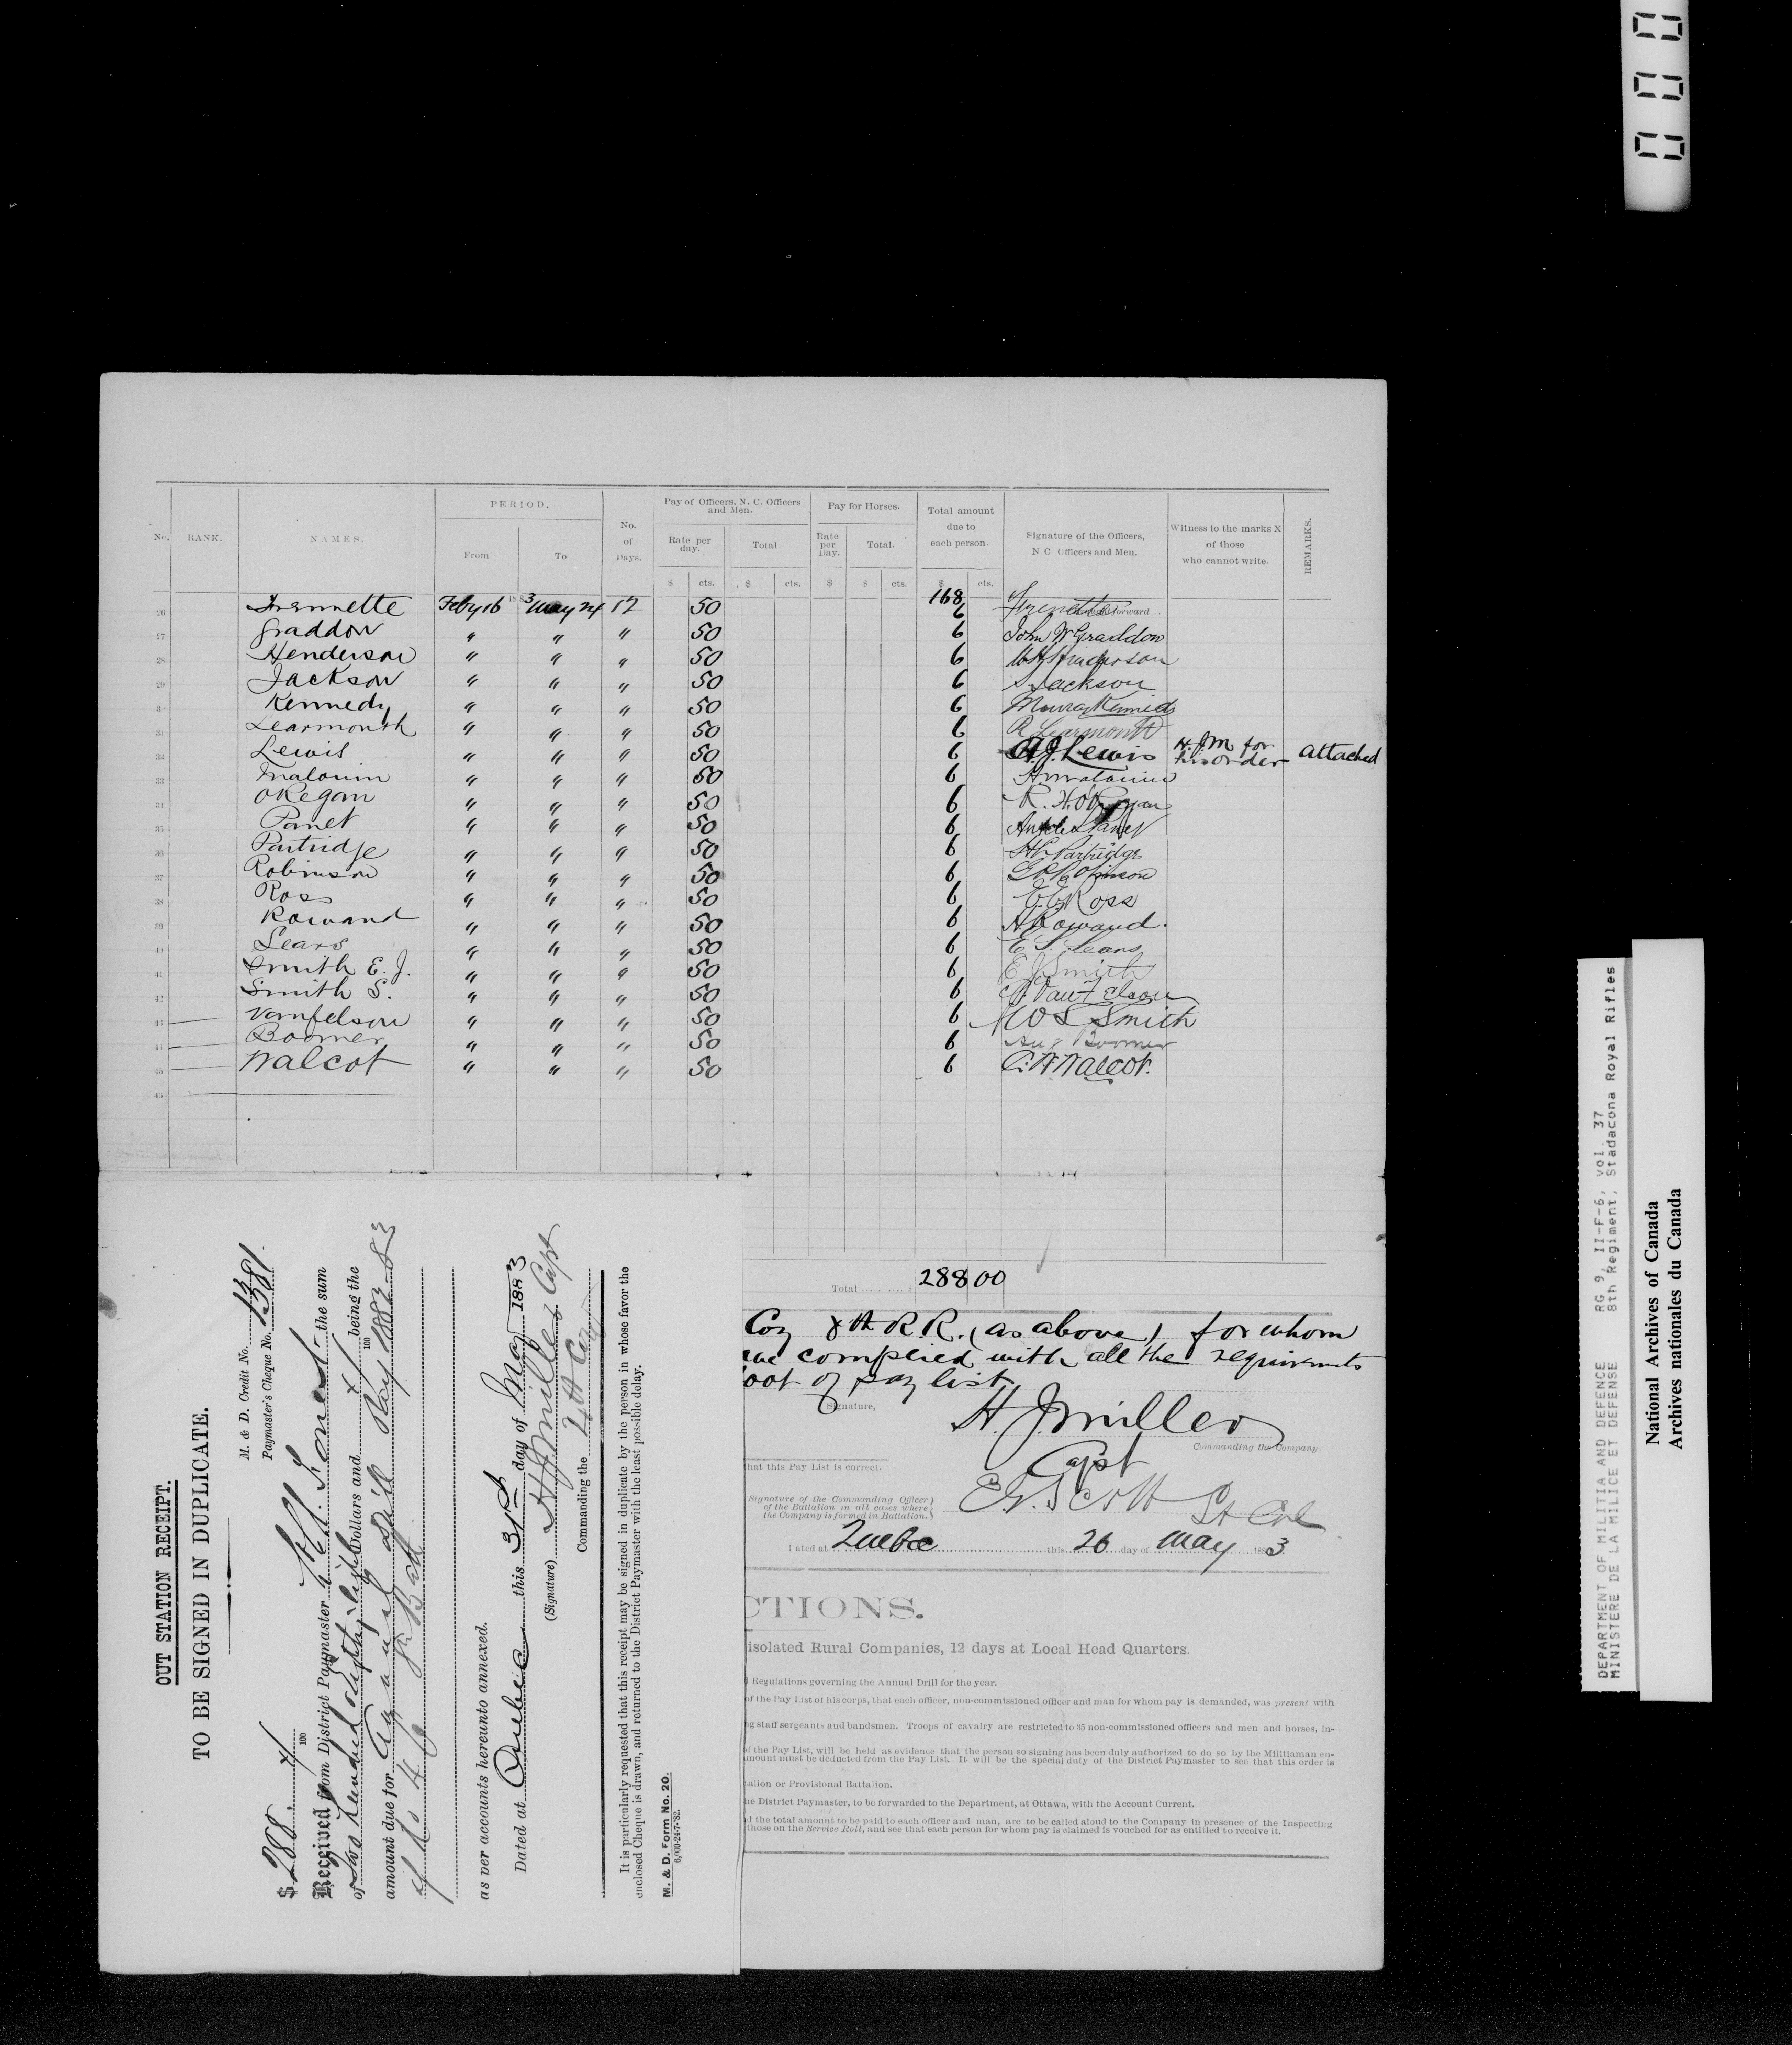 PERIOD.
Pay of Officers, N. C. Officers and Men.
Pay for Horses.
Total amount due to each person.
No. RANK. NAMES. From To No. of Days. Rate per day. Total Rate per Day. Total. Signature of the Officers, N C Officers and Men. Witness to the marks X of those who cannot write. REMARKS.
$ cts. $ cts. $ $ cts. $ cts.
168 forward
26 Frennette Feby 16 1883 May 24 12 50 6 Frenette
27 Graddon " " " 50 6 John W Graddon
28 Henderson " " " 50 6 Henderson
29 Jackson " " " 50 6 S Jackson
30 Kennedy " " " 50 6 Murray Kennedy
31 Learmonth " " " 50 6 R Learmonth
32 Lewis " " " 50 6 A.J. Lewis H.J.M for his order attached
33 Malouin " " " 50 6 A Malouin
34 O'Regan " " " 50 6 R. H. O'Regan
35 Panet " " " 50 6 Panet
36 Partridge " " " 50 6 Partridge
37 Robinson " " " 50 6 Robinson
38 Ross " " " 50 6 Ross
39 Rowand " " " 50 6 A Rowand.
40 Sears " " " 50 6 E S. Sears
41 Smith E. J. " " " 50 6 E J Smith
42 Smith S. " " " 50 6 VanFelson
43 Vanfelson " " " 50 6 W S Smith
44 Boomer " " " 50 6 Boomer
45 Walcot " " " 50 6 C. W Walcot.
45
Total ......... $ 288 00
Coy 8th R. R. (as above) for whom
have complied with all the requirements
foot of pay list
Signature, H. J. Miller
Capt
Commanding the Company
that this Pay List is correct.
Signature of the Commanding Officer
of the Battalion in all cases where
the Company is formed in Battalion.
Scott Lt Col
Dated at Quebec this 26 day of May 1883
CTIONS.
isolated Rural Companies, 12 days at Local Head Quarters.
Regulations governing the Annual Drill for the year.
of the Pay List of his corps, that each officer, non-commissioned officer and man for whom pay is demanded, was present with
ng staff sergeants and bandsmen. Troops of cavalry are restricted to 35 non-commissioned officers and men and horses, in-
of the Pay List, will be held as evidence that the person so signing has been duly authorized to do so by the Militiaman en-
amount must be deducted from the Pay List. It will be the special duty of the District Paymaster to see that this order is
talion or Provisional Battalion.
he District Paymaster, to be forwarded to the Department, at Ottawa, with the Account Current.
d the total amount to be paid to each officer and man, are to be called aloud to the Company in presence of the Inspecting
those on the Service Roll, and see that each person for whom pay is claimed is vouched for as entitled to receive it.
OUT STATION RECEIPT.
TO BE SIGNED IN DUPLICATE.
M. & D. Credit No.
Paymaster's Cheque No. 1381.
$ 288. x/100
Received from District Paymaster Forrest the sum
of Two hundred & Eighty-eight Dollars and x/100 being the
amount due for Annual Drill Pay 1882-83
of No 4 Coy 8th Batt
as per accounts hereunto annexed.
Dated at Quebec this 31st day of May 1883
(Signature) H J Miller Capt
Commanding the 4th Coy
It is particularly requested that this receipt may be signed in duplicate by the person in whose favor the
enclosed Cheque is drawn, and returned to the District Paymaster with the least possible delay.
M. & D. Form No. 20.
6,000-24-7-'82.
DEPARTMENT OF MILITIA AND DEFENCE RG 9, II-F-6, vol. 37
MINISTERE DE LA MILICE ET DEFENSE 8th Regiment, Stadacona Royal Rifles
National Archives of Canada
Archives nationales du Canada